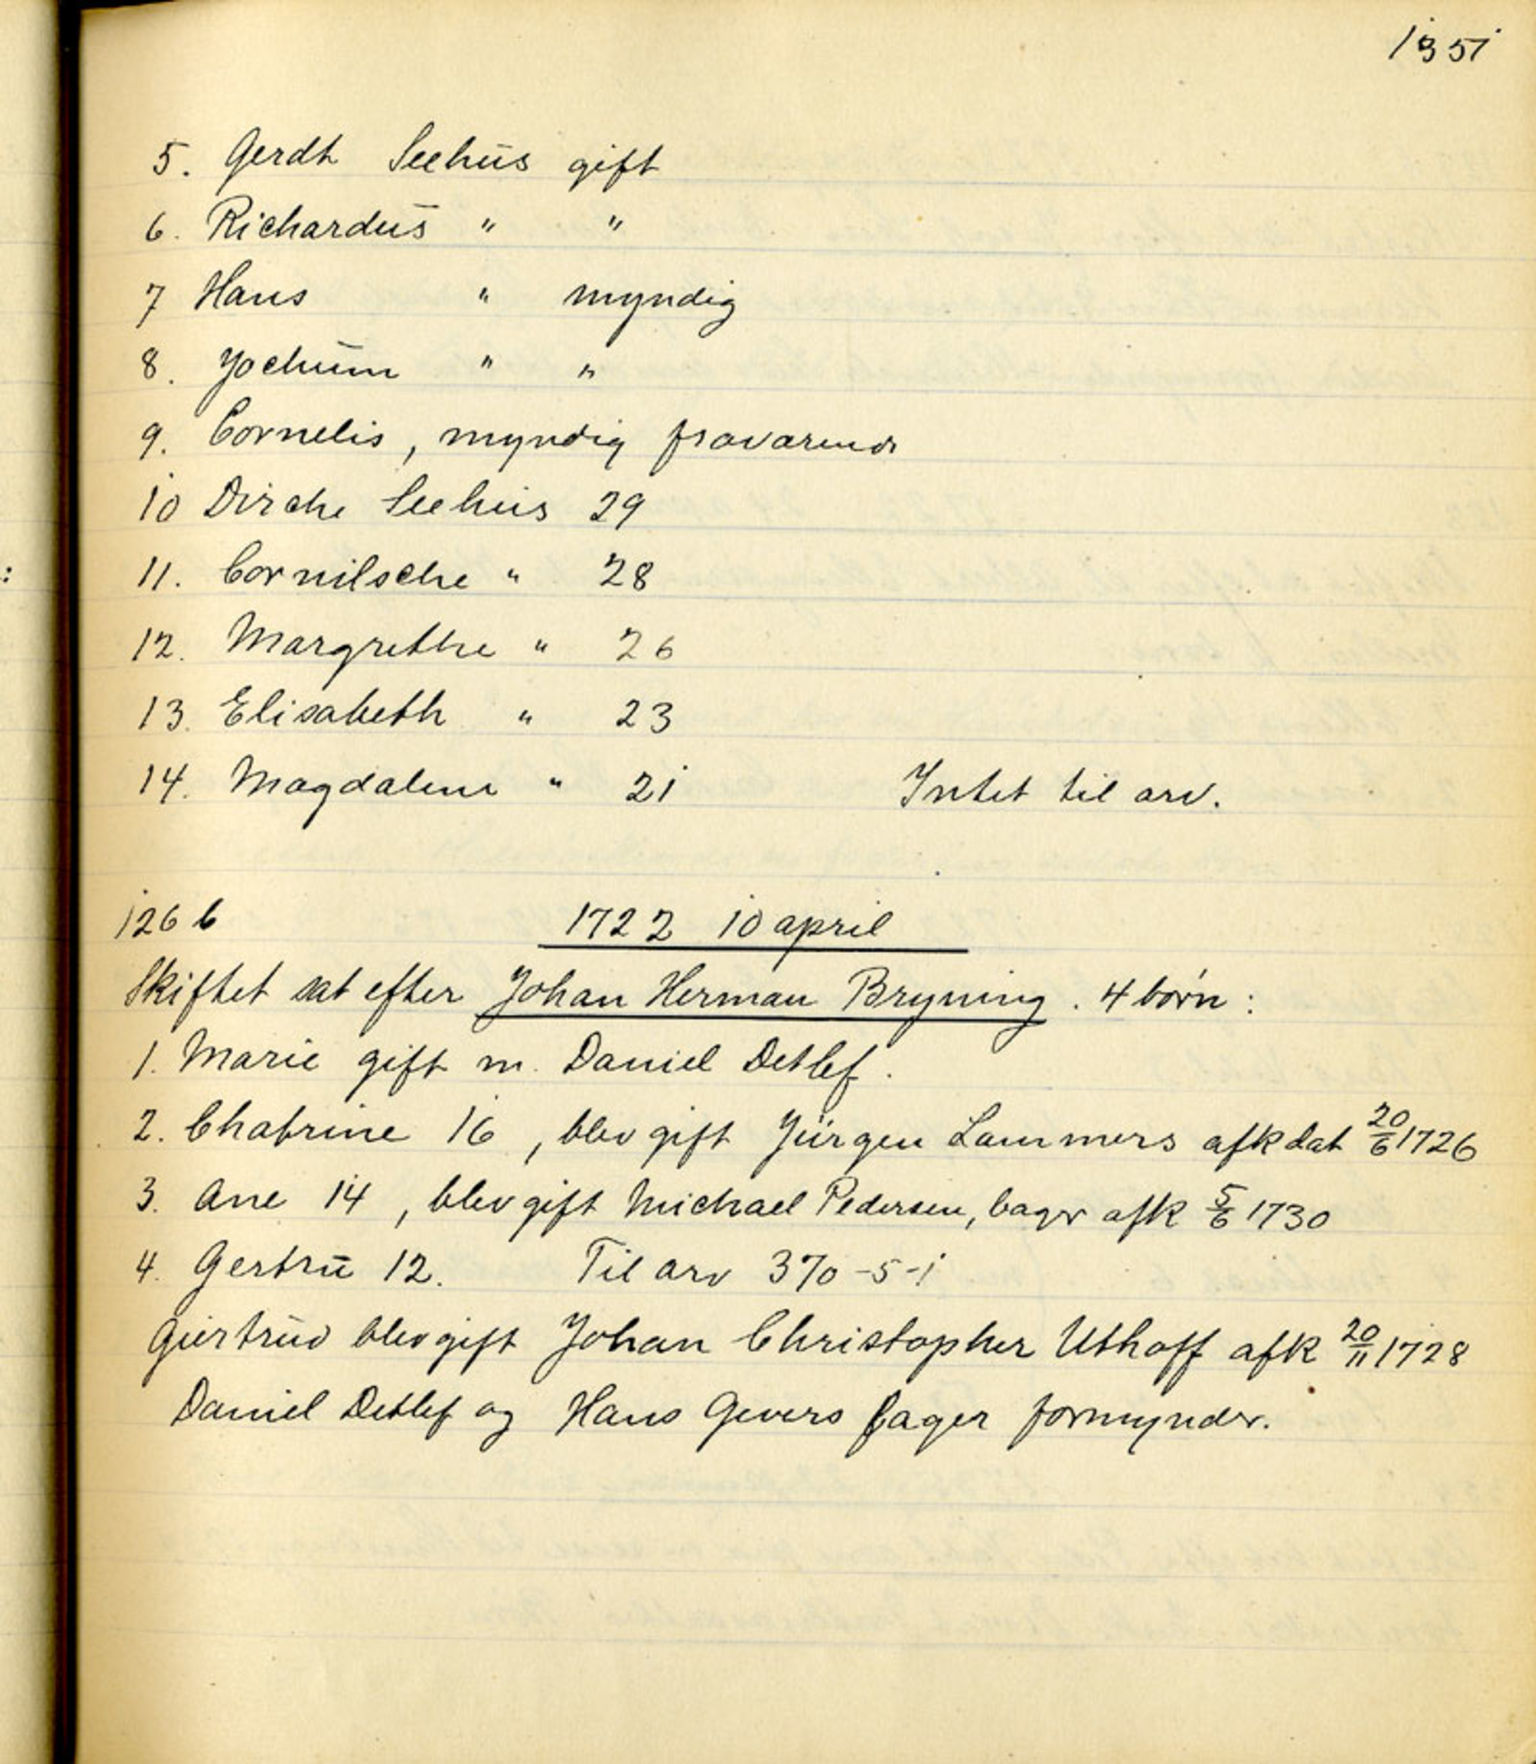 1351
5. Gerdt Seehūs gift
6. Richardūs " "
7 Hans " myndig
8. Jochūm " "
9. Cornelis, myndig fraværende
10 Dirche Seehūs 29
11. Cornilsche " 28
12. Margrethe " 26
13. Elisabeth " 23
14. Magdalene " 21 Intet til arv.
126 b 1722 10 april
Skiftet sat efter Johan Herman Bryning. 4 børn:
1. Marie gift m. Daniel Detlef.
2. Chatrine 16, blev gift Jürgen Lammers afkdat 20/6 1726
3. Ane 14, blev gift Michael Pedersen, bager afk 5/6 1730
4. Gertrū 12. Til arv 370-5-1
Giertrūd blev gift Johan Christopher Uthoff afk 20/11 1728
Daniel Detlef og Hans Gevers bager formynder.